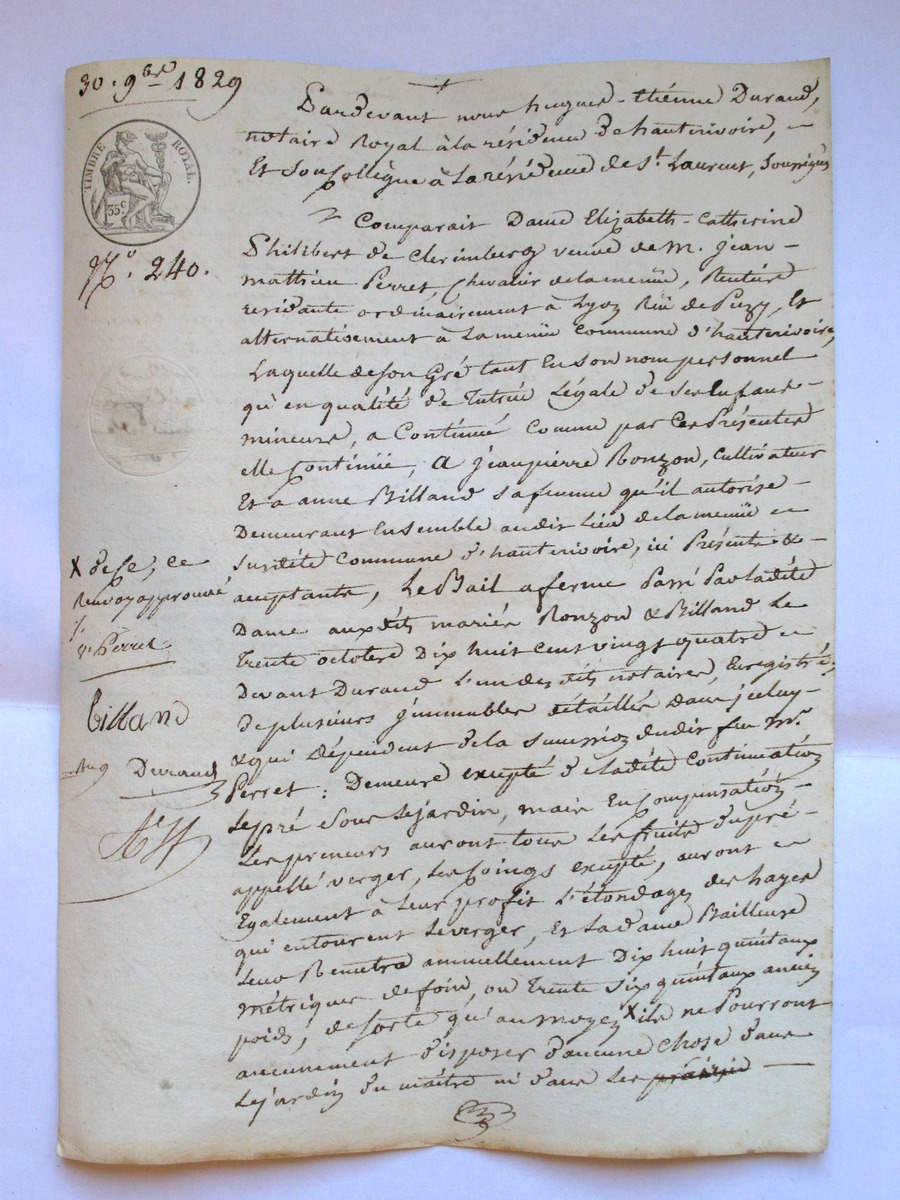 30. 9bre 1829
TIMBRE ROYAL.
35c
No. 240.
Pardevant nous hugues-étienne Durand,
notaire Royal à la résidence de hauterivoire,
Et son Collègue à la résidence de St. Laurent, Soussignés
Comparait Dame Elizabeth-Catherine
Philibert de Clerimburg veuve de m. jean-
mathieu Perret, Chevalier de la menüe, Rentière
residante ordinairement à Lyon Rüe de Puzy, Et
alternativement à Lamenüe commune d'hauterivoire,
Laquelle de son Gré tant En son nom personnel
qu'en qualité de Tutrice Légale de ses Enfans
mineurs, a Continué comme par Ces Présentes
elle Continüe, A jeanpierre Ronzon, Cultivateur
Et a anne Billand sa femme qu'il autorise
Demeurant Ensemble audit Lieu de la menüe
susdite Commune d'hauterivoire, ici Présents &
acceptants, Le Bail a ferme Passé Par ladite
Dame auxdits mariés Ronzon & Billand Le
Trente octobre Dix huit cent vingt quatre
Devant Durand L'un desdits notaires, Enregistré,
De plusieurs jmmeubles détaillés dans jceluy
& qui dépendent de la succession dudit feu mr.
Perret : Demeure excepté de ladite Continuation
Le pré sous Le jardin, mais En Compensation
Les preneurs auront tous Les fruits du pré
appellé verger, Les foings excepté, auront
Egalement à Leur profit L'étondage des hayes
qui entourent Le verger, Et La dame Bailleuse
Leur Remettra annuellement Dix huit quintaux
métriques de foin, ou Trente Six quintaux ancien
poids, de sorte qu'au moyen X ils ne Pourront
aucunement disposer d'aucune chose dans
Le jardin du maître ni dans Les prairie
X de ce, ce
Renvoy approuvé
ve Perret
billand
Durand